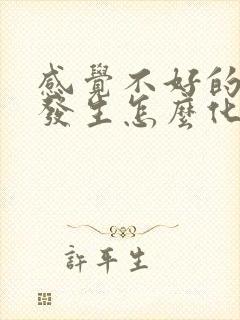 感覺不好的
發生怎麼化
許平生